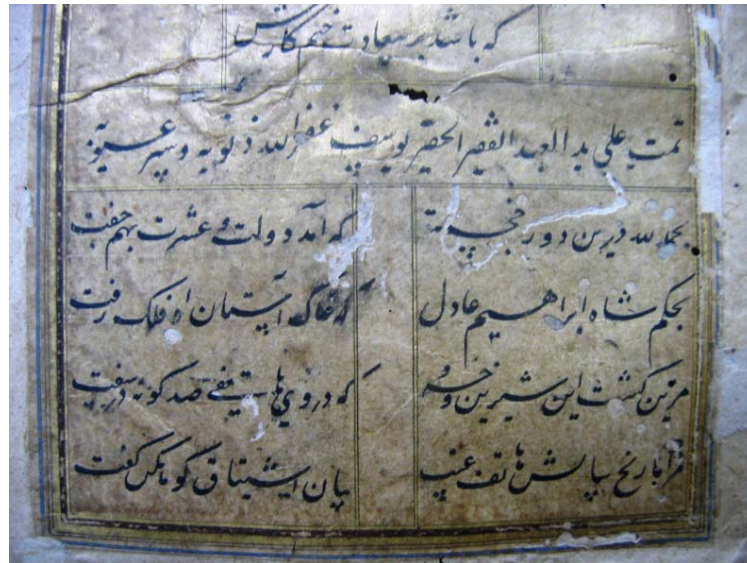 که باشد بر سعادت ختم کارش
تمت علی ید العبد الفقیر الحقیر یوسف غفرالله ذنوبه وستر عیوبه
بحمد لله درین دور خجسته که آمد دولت و عشرت بهم جفت
بحکم شاه ابراهیم عادل که خاک آستان او فلک رفت
مزین گشت این شیرین و خسرو که در وی هاتفی صد گونه در سفت
مرا تاریخ سالش هاتف غیب بیان اشتیاق گو